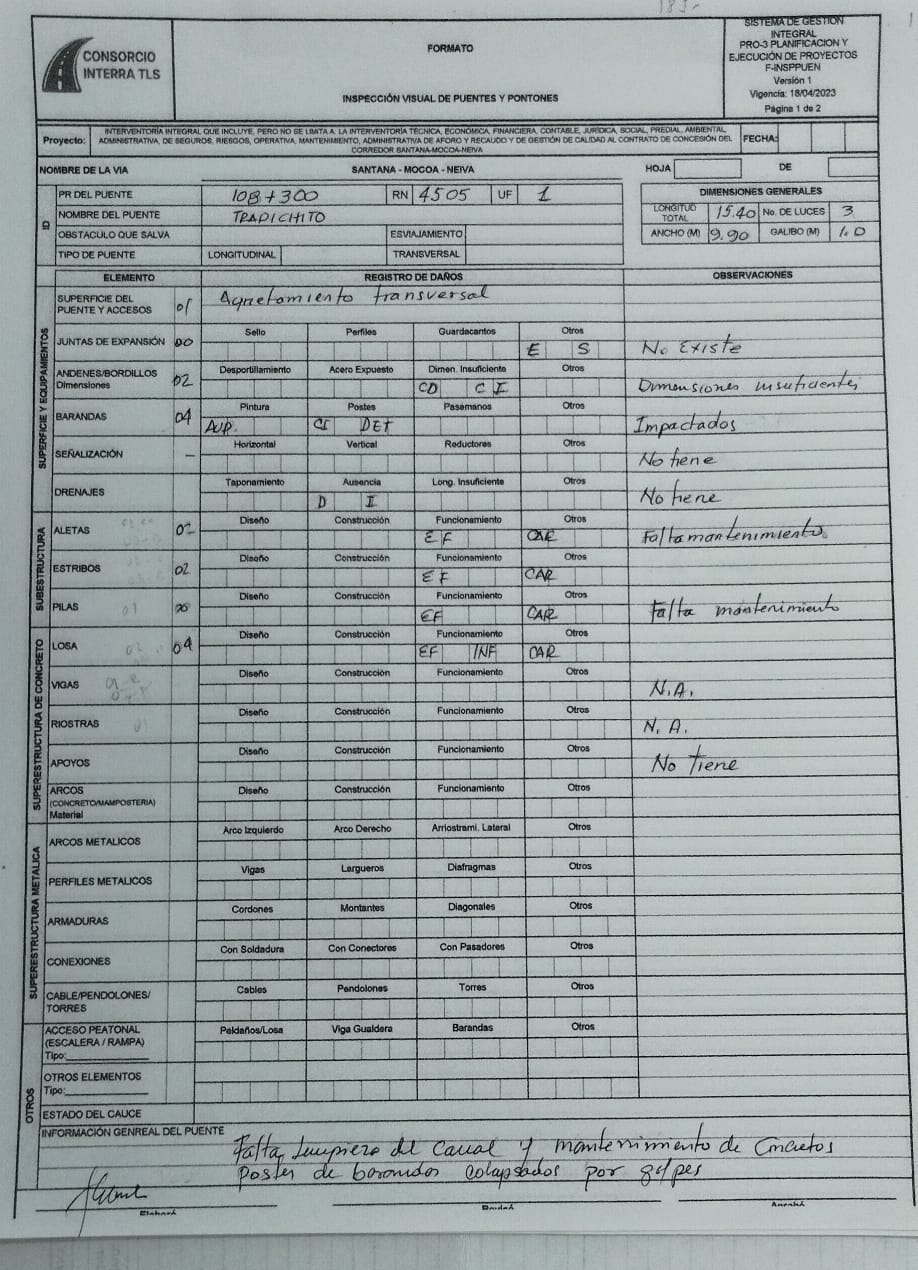 CONSORCIO
INTERRA TLS
FORMATO
INSPECCIÓN VISUAL DE PUENTES Y PONTONES
SISTEMA DE GESTION
INTEGRAL
PRO-3 PLANIFICACION Y
EJECUCIÓN DE PROYECTOS
F-INSPPUEN
Versión 1
Vigencia: 18/04/2023
Página 1 de 2
Proyecto:
INTERVENTORÍA INTEGRAL QUE INCLUYE, PERO NO SE LIMITA A: LA INTERVENTORÍA TÉCNICA, ECONÓMICA, FINANCIERA, CONTABLE, JURÍDICA, SOCIAL, PREDIAL, AMBIENTAL,
ADMINISTRATIVA, DE SEGUROS, RIESGOS, OPERATIVA, MANTENIMIENTO, ADMINISTRATIVA DE AFORO Y RECAUDO Y DE GESTIÓN DE CALIDAD AL CONTRATO DE CONCESIÓN DEL
CORREDOR SANTANA-MOCOA-NEIVA
FECHA:
NOMBRE DE LA VIA SANTANA - MOCOA - NEIVA HOJA DE
ID
PR DEL PUENTE 108+300 RN 4505 UF 1
DIMENSIONES GENERALES
NOMBRE DEL PUENTE TRAPICHITO
LONGITUD TOTAL 15.40 No. DE LUCES 3
OBSTACULO QUE SALVA ESVIAJAMIENTO
ANCHO (M) 9.90 GALIBO (M) 1.0
TIPO DE PUENTE LONGITUDINAL TRANSVERSAL
ELEMENTO REGISTRO DE DAÑOS OBSERVACIONES
SUPERFICIE Y EQUIPAMIENTOS
SUPERFICIE DEL
PUENTE Y ACCESOS 01 Agrietamiento transversal
Sello Perfiles Guardacantos Otros
JUNTAS DE EXPANSIÓN 00 E S No Existe
Desportillamiento Acero Expuesto Dimen. Insuficiente Otros
ANDENES/BORDILLOS
Dimensiones 02 CD CI Dimensiones insuficientes
Pintura Postes Pasamanos Otros
BARANDAS 04 AUP. CI DET Impactados
Horizontal Vertical Reductores Otros
SEÑALIZACIÓN — No tiene
Taponamiento Ausencia Long. Insuficiente Otros
DRENAJES D I No tiene
SUBESTRUCTURA
Diseño Construcción Funcionamiento Otros
ALETAS 02 EF CAR Falta mantenimiento.
Diseño Construcción Funcionamiento Otros
ESTRIBOS 02 EF CAR
Diseño Construcción Funcionamiento Otros
PILAS 01 EF CAR Falta mantenimiento
SUPERESTRUCTURA DE CONCRETO
Diseño Construcción Funcionamiento Otros
LOSA 04 EF INF CAR
Diseño Construcción Funcionamiento Otros
VIGAS N.A.
Diseño Construcción Funcionamiento Otros
RIOSTRAS N.A.
Diseño Construcción Funcionamiento Otros
APOYOS No tiene
Diseño Construcción Funcionamiento Otros
ARCOS
(CONCRETO/MAMPOSTERIA)
Material
SUPERESTRUCTURA METALICA
Arco Izquierdo Arco Derecho Arriostrami. Lateral Otros
ARCOS METALICOS
Vigas Largueros Diafragmas Otros
PERFILES METALICOS
Cordones Montantes Diagonales Otros
ARMADURAS
Con Soldadura Con Conectores Con Pasadores Otros
CONEXIONES
Cables Pendolones Torres Otros
CABLE/PENDOLONES/
TORRES
OTROS
ACCESO PEATONAL Peldaños/Losa Viga Gualdera Barandas Otros
(ESCALERA / RAMPA)
Tipo:
OTROS ELEMENTOS
Tipo:
ESTADO DEL CAUCE
INFORMACIÓN GENREAL DEL PUENTE
Falta limpieza del Canal y mantenimiento de Concretos
Postes de barandas colapsados por golpes
Elaboró Revisó Aprobó